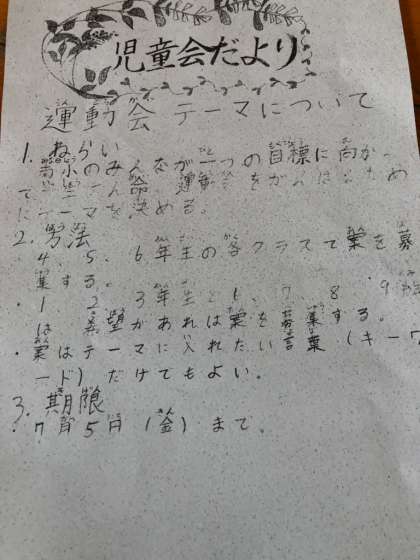 児童会だより
運動会テーマについて
1. ねらい
小のみんなが一つの目標に向かっ
て 運動会をがんばるため
にテーマを決める。
2. 方法
4、5、6年生の各クラスで案を募
集する。
・1、2、3年生と 7、8、9
は希望があれば案を募集する。
・案はテーマに入れたい言葉(キーワ
ード)だけでもよい。
3. 期限
・7月5日(金)まで。